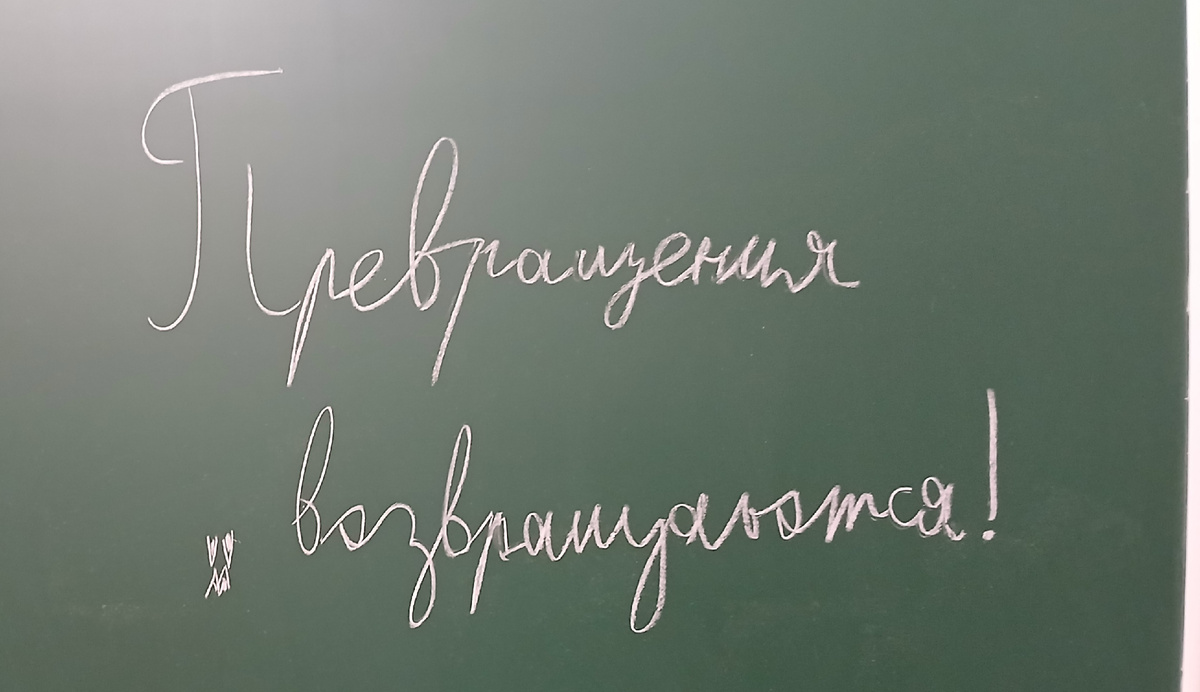 Превращения
возвращаются!